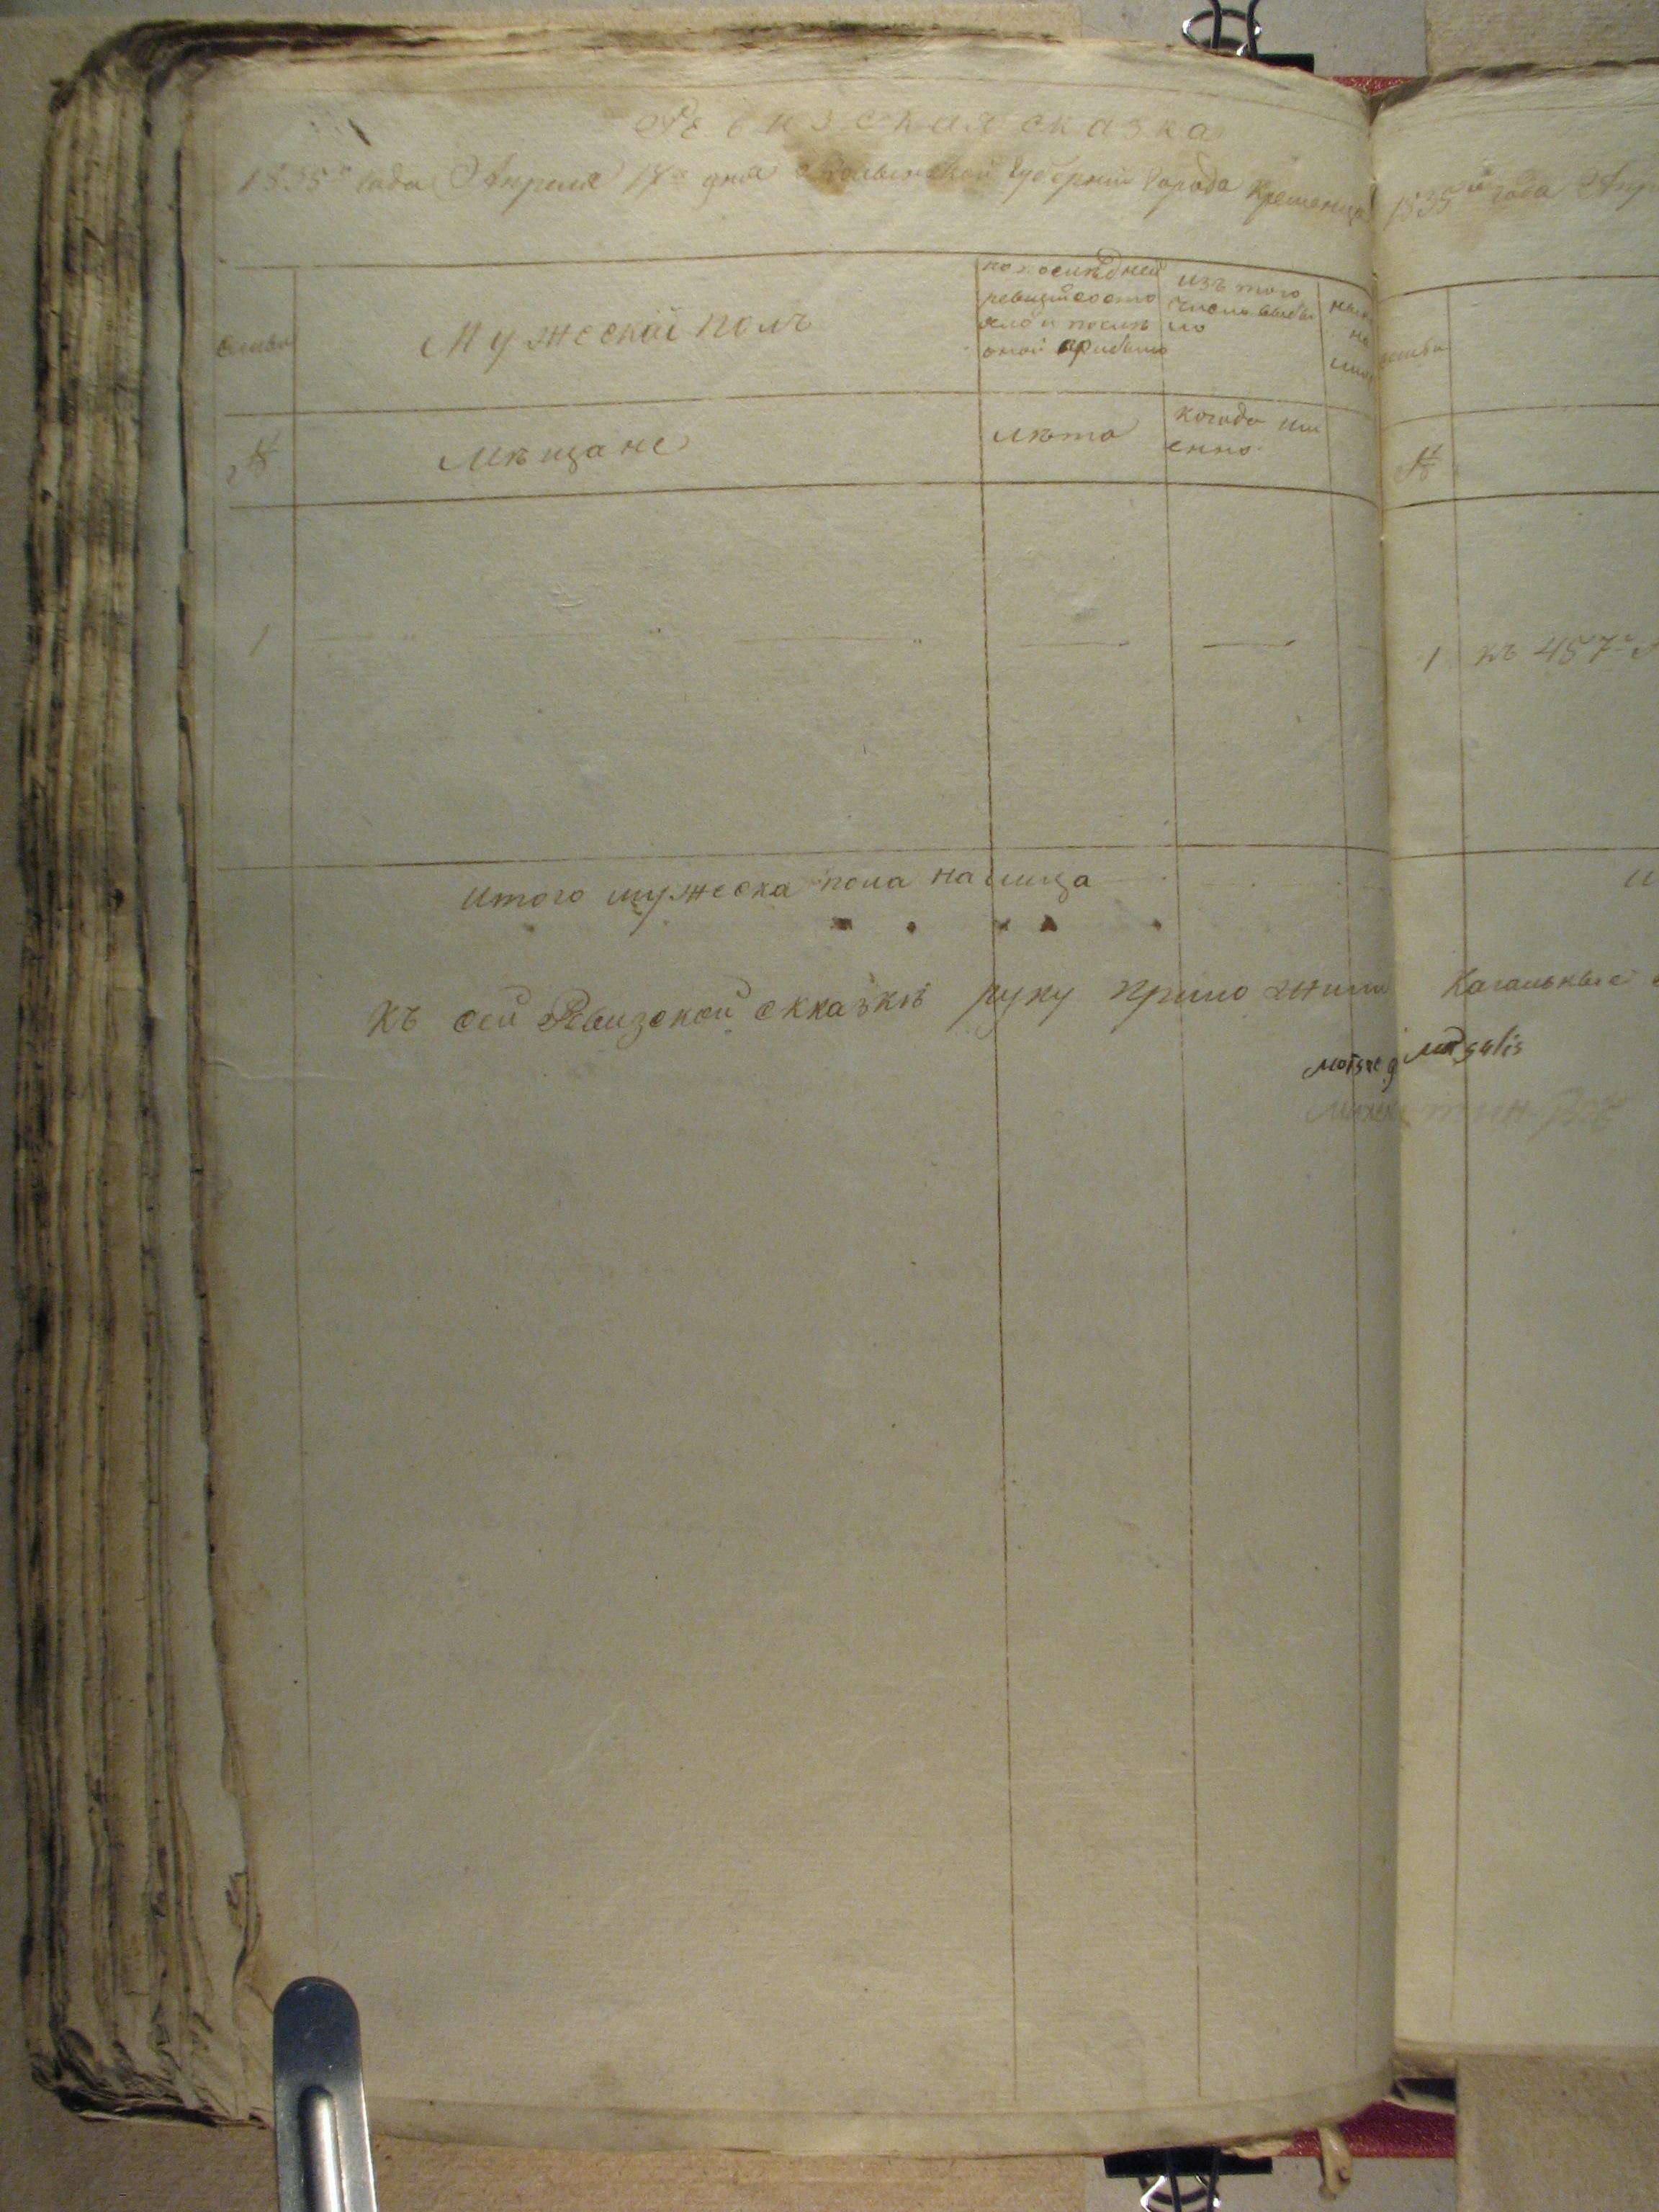 Ревизская сказка
1835го года Апреля 18го дня Волынской Губерніи Города Кременца
семьи
Мужескій полъ
по последней
ревизіи состо
яло и после
оной прибыло
изъ того
числа выбы
ло
ныне
на
лицо
№
Мѣщане
лѣта
когода им
енно
1
Итого мужеска пола налица
Къ сей Ревизской скказкѣ руку приложили Кагальные
1835го года Апр
семьи
№
1 къ 457